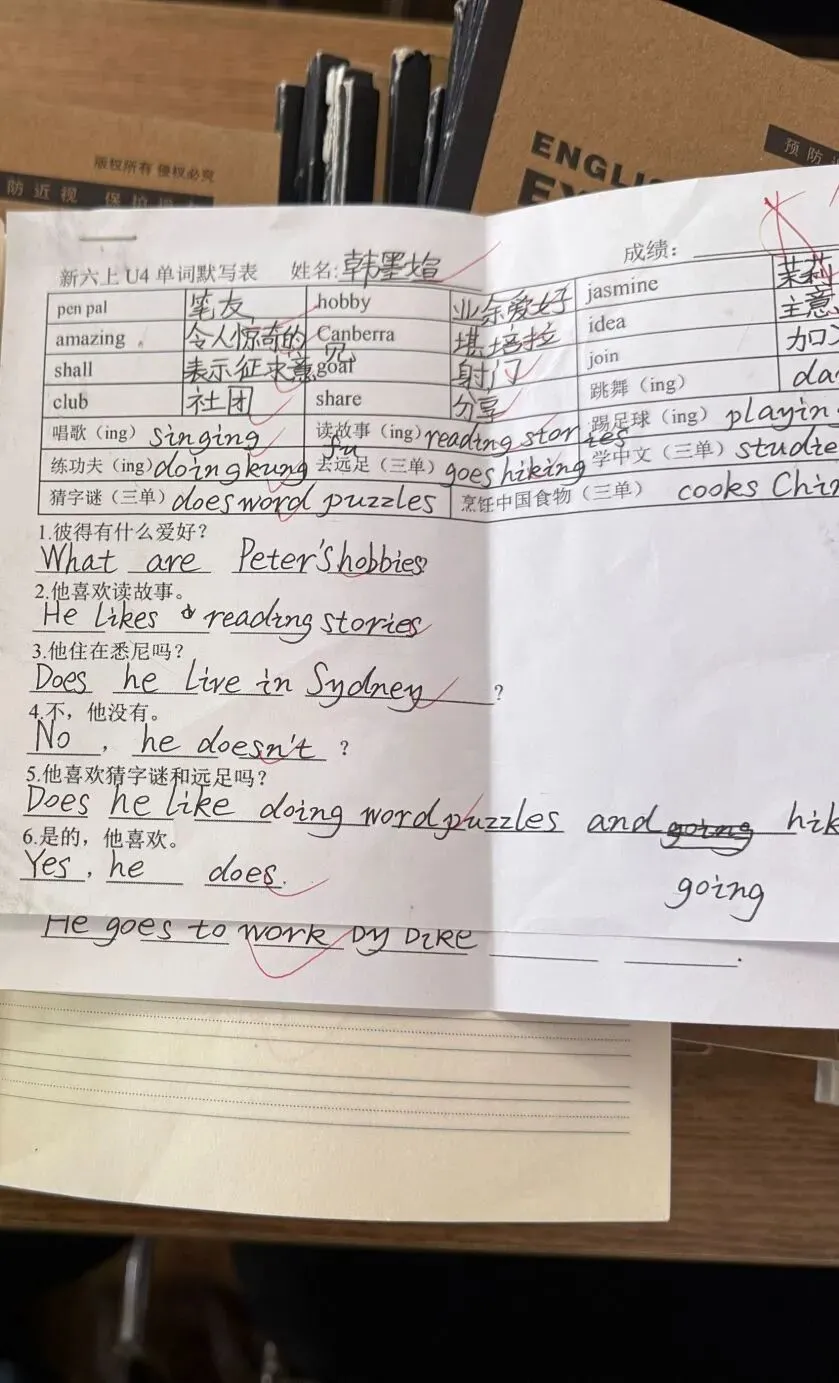 版权所有 侵权必究
防近视 保护视
ENGLIS
EX
预防
新六上 U4 单词默写表 姓名: 韩墨煊 成绩:
pen pal 笔友 hobby 业余爱好 jasmine 茉莉
amazing 令人惊奇的 Canberra 堪培拉 idea 主意
shall 表示征求意见 goal 射门 join 加入
club 社团 share 分享 跳舞（ing） da
唱歌（ing） singing 读故事（ing） reading stories 踢足球（ing） playin
练功夫（ing） doing kung fu 去远足（三单） goes hiking 学中文（三单） studie
猜字谜（三单） does word puzzles 烹饪中国食物（三单） cooks Chin
1.彼得有什么爱好？
What are Peter's hobbies?
2.他喜欢读故事。
He likes reading stories
3.他住在悉尼吗？
Does he live in Sydney ?
4.不，他没有。
No , he doesn't ?
5.他喜欢猜字谜和远足吗？
Does he like doing word puzzles and going hik
6.是的，他喜欢。
going
Yes , he does.
He goes to work by bike .